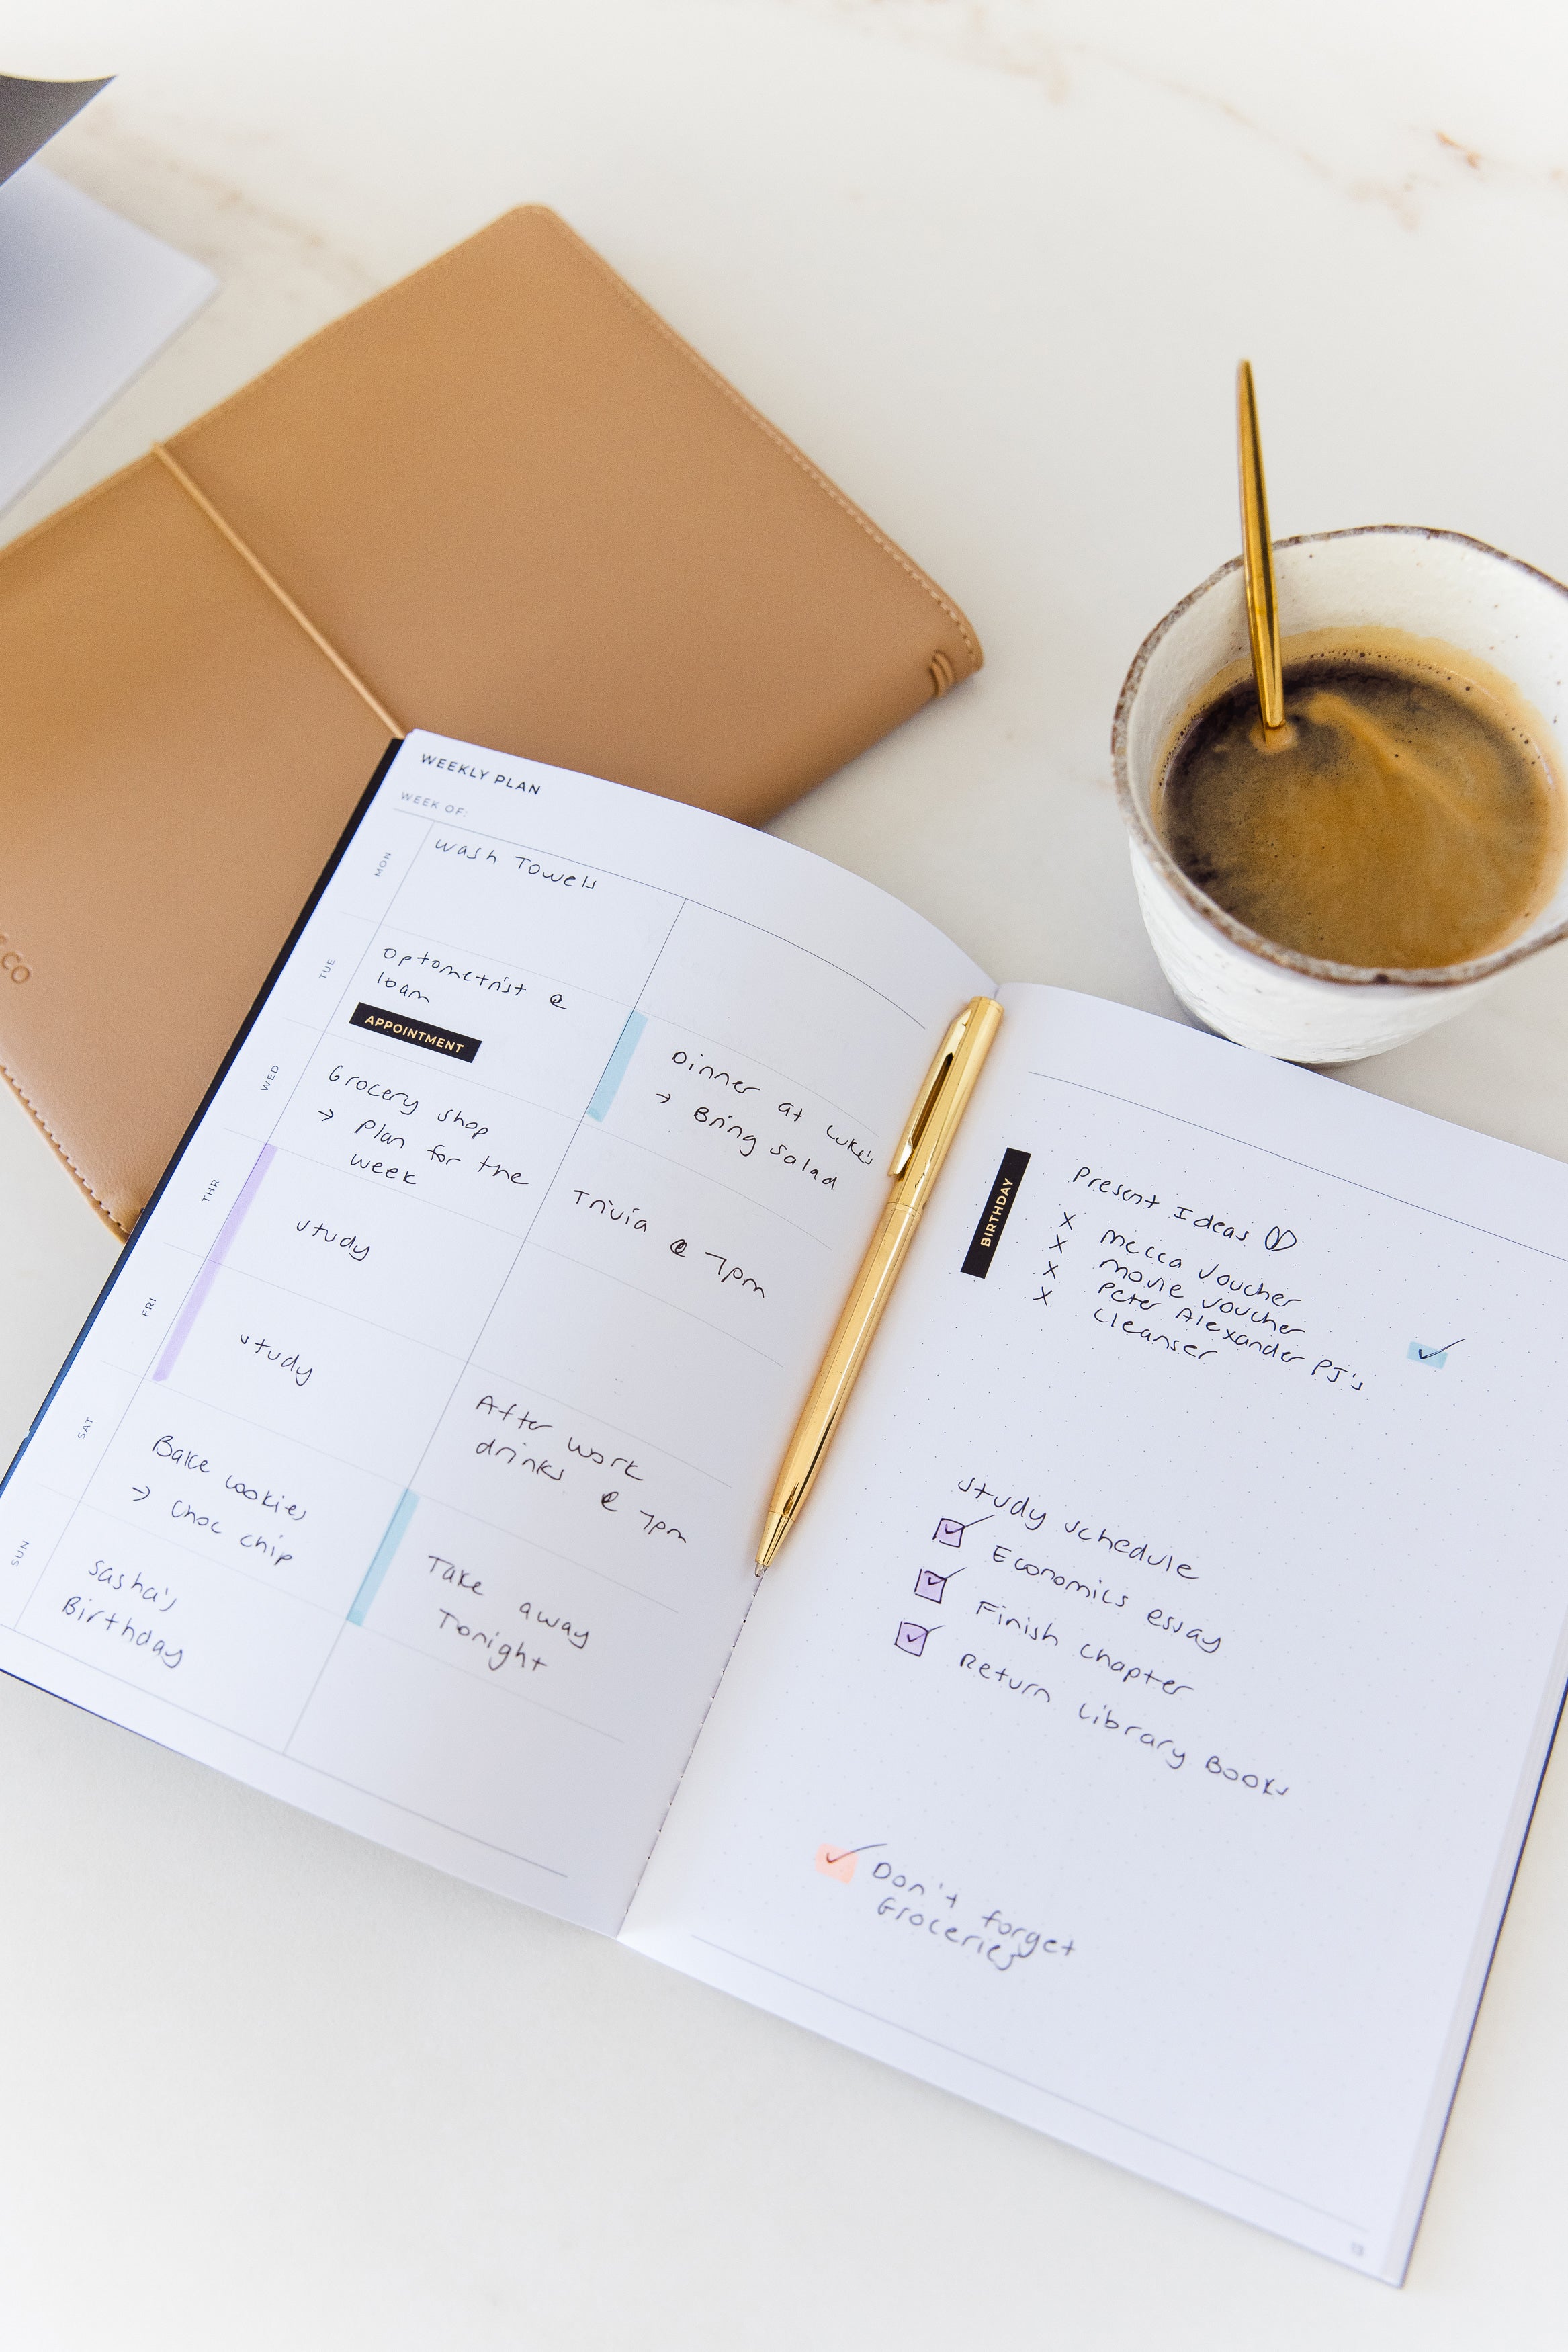 WEEKLY PLAN
WEEK OF:
MON
Wash Towels
TUE
Optometrist @
10am
APPOINTMENT
WED
Grocery shop
→ Plan for the
week
THR
study
FRI
study
SAT
Bake cookies
→ Choc chip
SUN
Sasha's
Birthday
Dinner at Luke's
→ Bring salad
Trivia @ 7pm
After work
drinks @ 7pm
Take away
Tonight
BIRTHDAY
Present Ideas ♡
X Mecca Voucher
X Movie Voucher
X Peter Alexander PJ's ✓
X Cleanser
Study schedule
☑ Economics essay
☑ Finish chapter
☑ Return Library Books
✓ Don't forget
Groceries
CO